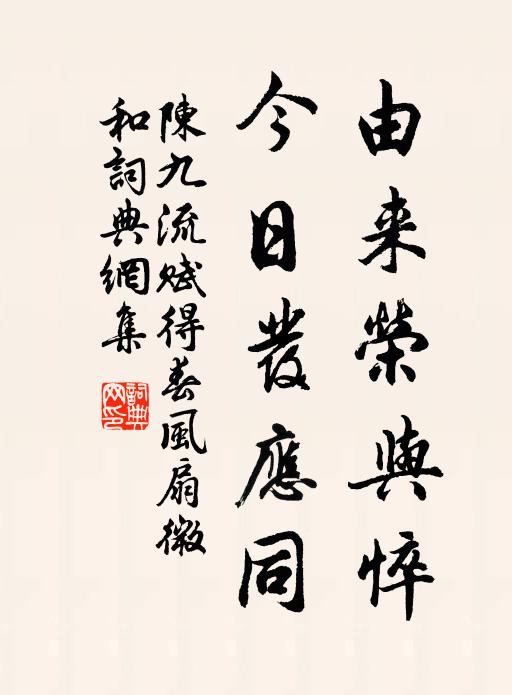 由来榮與悴
今日發應同
陳九流賦得春風扇微
和詞典網集
詞典
网印